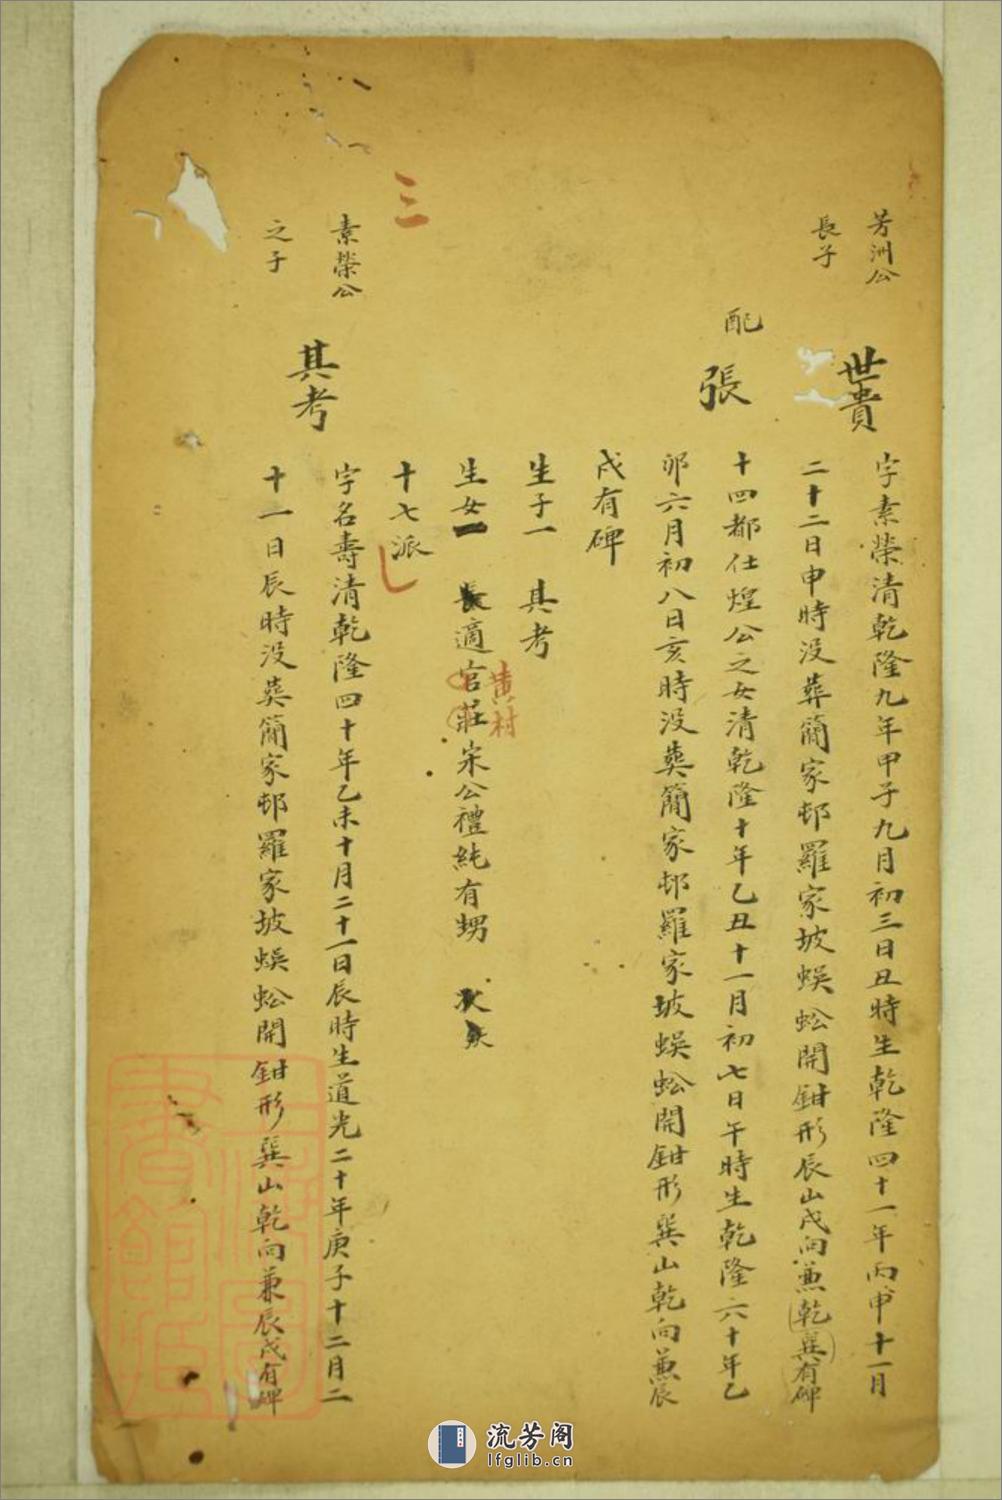 芳洲公
長子
世貴
字素榮清乾隆九年甲子九月初三日丑時生乾隆四十一年丙申十一月
二十二日申時没葬簡家邨羅家坡蜈蚣開鉗形辰山戌向兼乾巽有碑
配
張
十四都仕煌公之女清乾隆十年乙丑十一月初七日午時生乾隆六十年乙
卯六月初八日亥時没葬簡家邨羅家坡蜈蚣開鉗形巽山乾向兼辰
戌有碑
生子一 其考
黄村
生女一 長適官莊宋公禮純有甥
三
十七派
素榮公
之子
其考
字名壽清乾隆四十年乙未十月二十一日辰時生道光二十年庚子十二月二
十一日辰時没葬簡家邨羅家坡蜈蚣開鉗形巽山乾向兼辰戌有碑
流芳阁
lfglib.cn